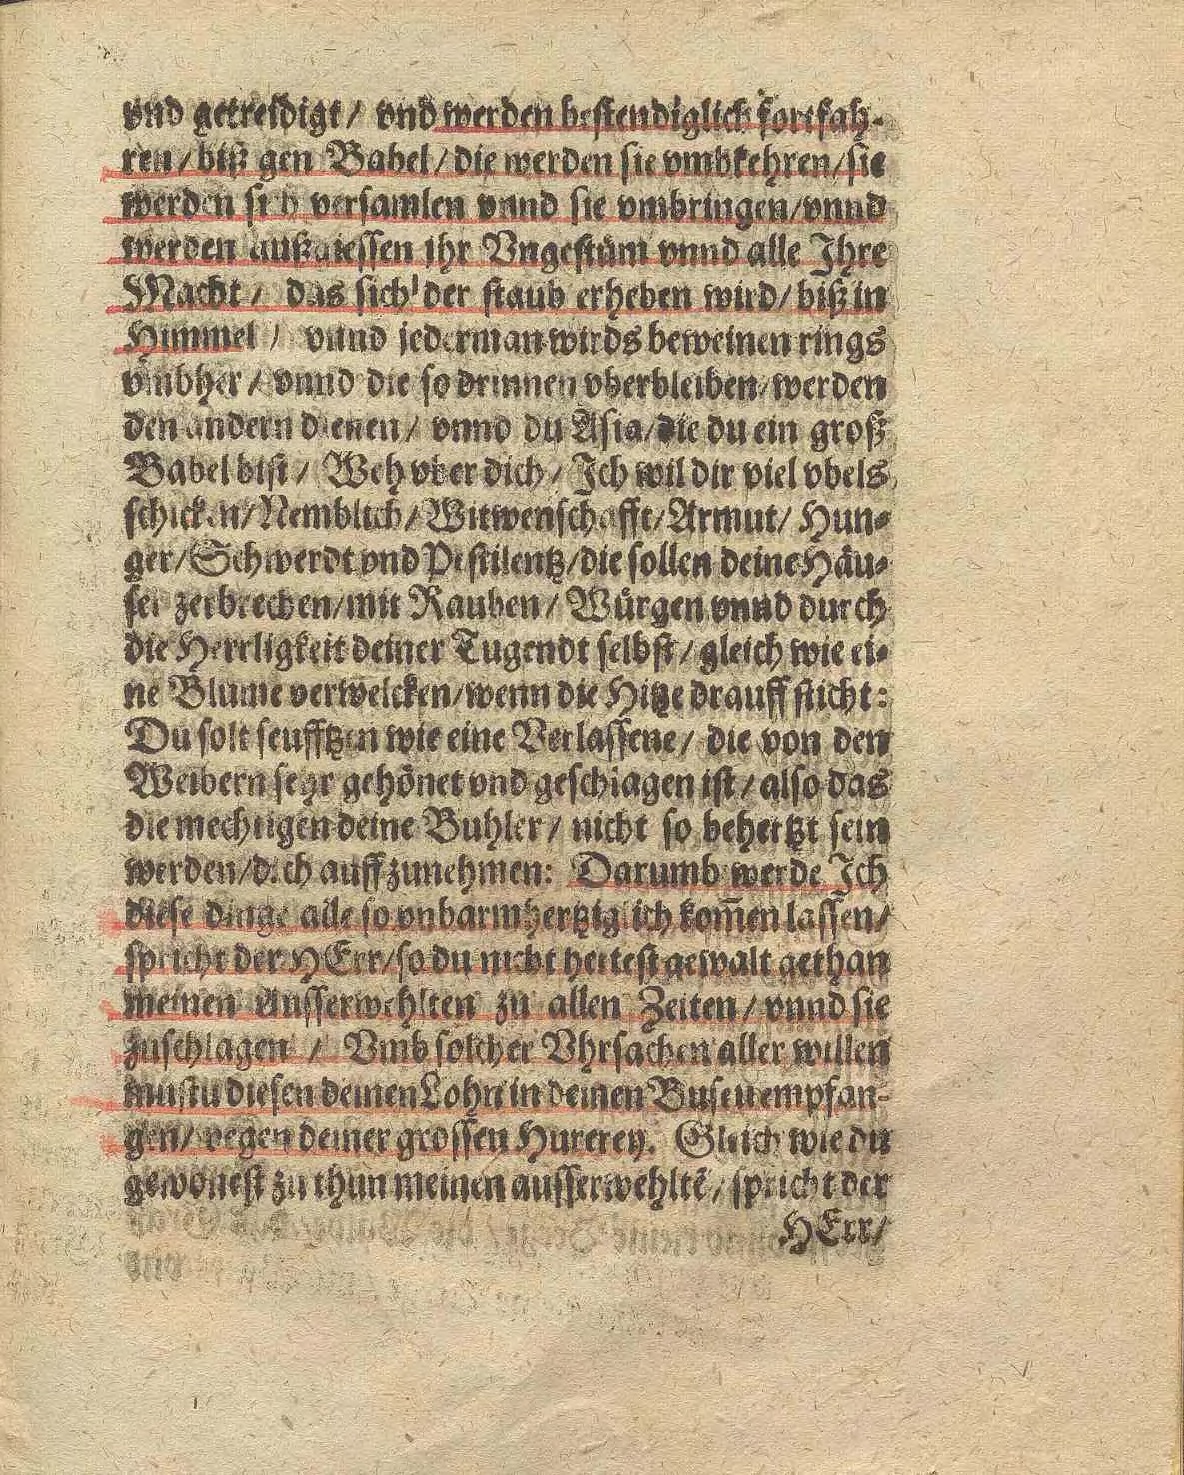 vnd getreidigt / vnd werden bestendiglich fortfah-
ren / biß gen Babel / die werden sie vmbkehren / sie
werden sich versamlen vnnd sie vmbringen / vnnd
werden außgiessen jhr Vngestüm vnnd alle Ihre
Macht / das sich der staub erheben wird / biß in
Himmel / vnnd jederman wirds beweinen rings
vmbher / vnnd die so drinnen vberbleiben / werden
den andern dienen / vnnd du Asia / die du ein groß
Babel bist / Weh vber dich / Ich wil dir viel vbels
schicken / Nemblich / Witwenschafft / Armut / Hun-
ger / Schwerdt vnd Pestilentz / die sollen deine Häu-
ser zerbrechen / mit Rauben / Würgen vnnd durch
die Herrligkeit deiner Tugendt selbst / gleich wie ei-
ne Blume verwelcken / wenn die Hitze drauff sticht:
Du solt seufftzen wie eine Verlassene / die von den
Weibern sehr gehönet vnd geschlagen ist / also das
die mechtigen deine Buhler / nicht so behertzt sein
werden / dich auffzunehmen: Darumb werde Ich
diese dinge alle so vnbarmhertziglich kom̃en lassen /
spricht der HErr / so du nicht hettest gewalt gethan
meinen Ausserwehlten zu allen Zeiten / vnnd sie
zuschlagen / Vmb solcher Vhrsachen aller willen
mustu diesen deinen Lohn in deinen Busen empfan-
gen / wegen deiner grossen Hurerey. Gleich wie du
gewonest zu thun meinen ausserwehltẽ / spricht der
HErr /